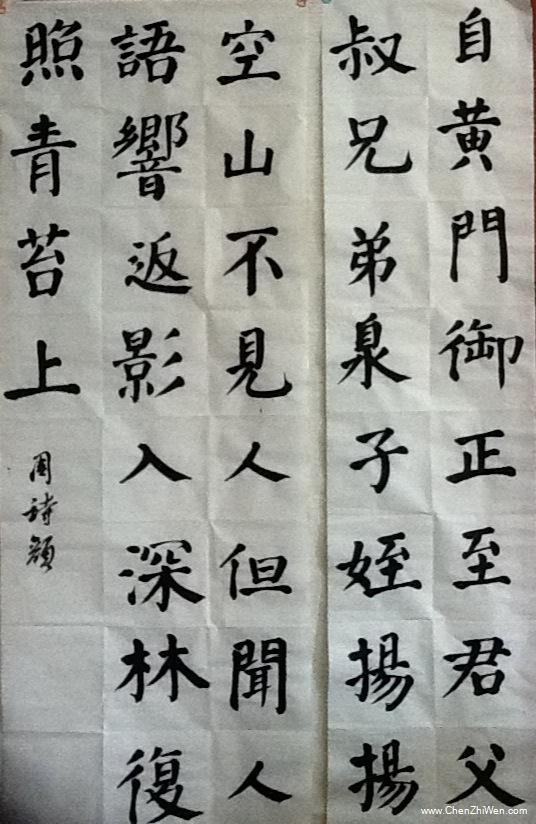 自黄門御正至君父
叔兄弟泉子姪揚揚
空山不見人但聞人
語響返影入深林復
照青苔上
周詩顏
www.ChenZhiWen.com